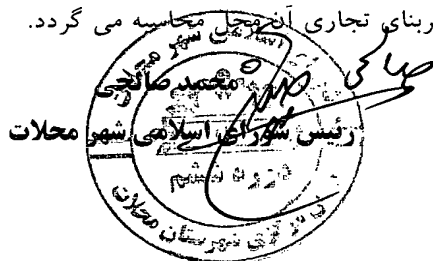 ربنای تجاری آن محل محاسبه می گردد.
محمد صالحی
رئیس شورای اسلامی شهر محلات
دوره ششم
شهرستان محلات